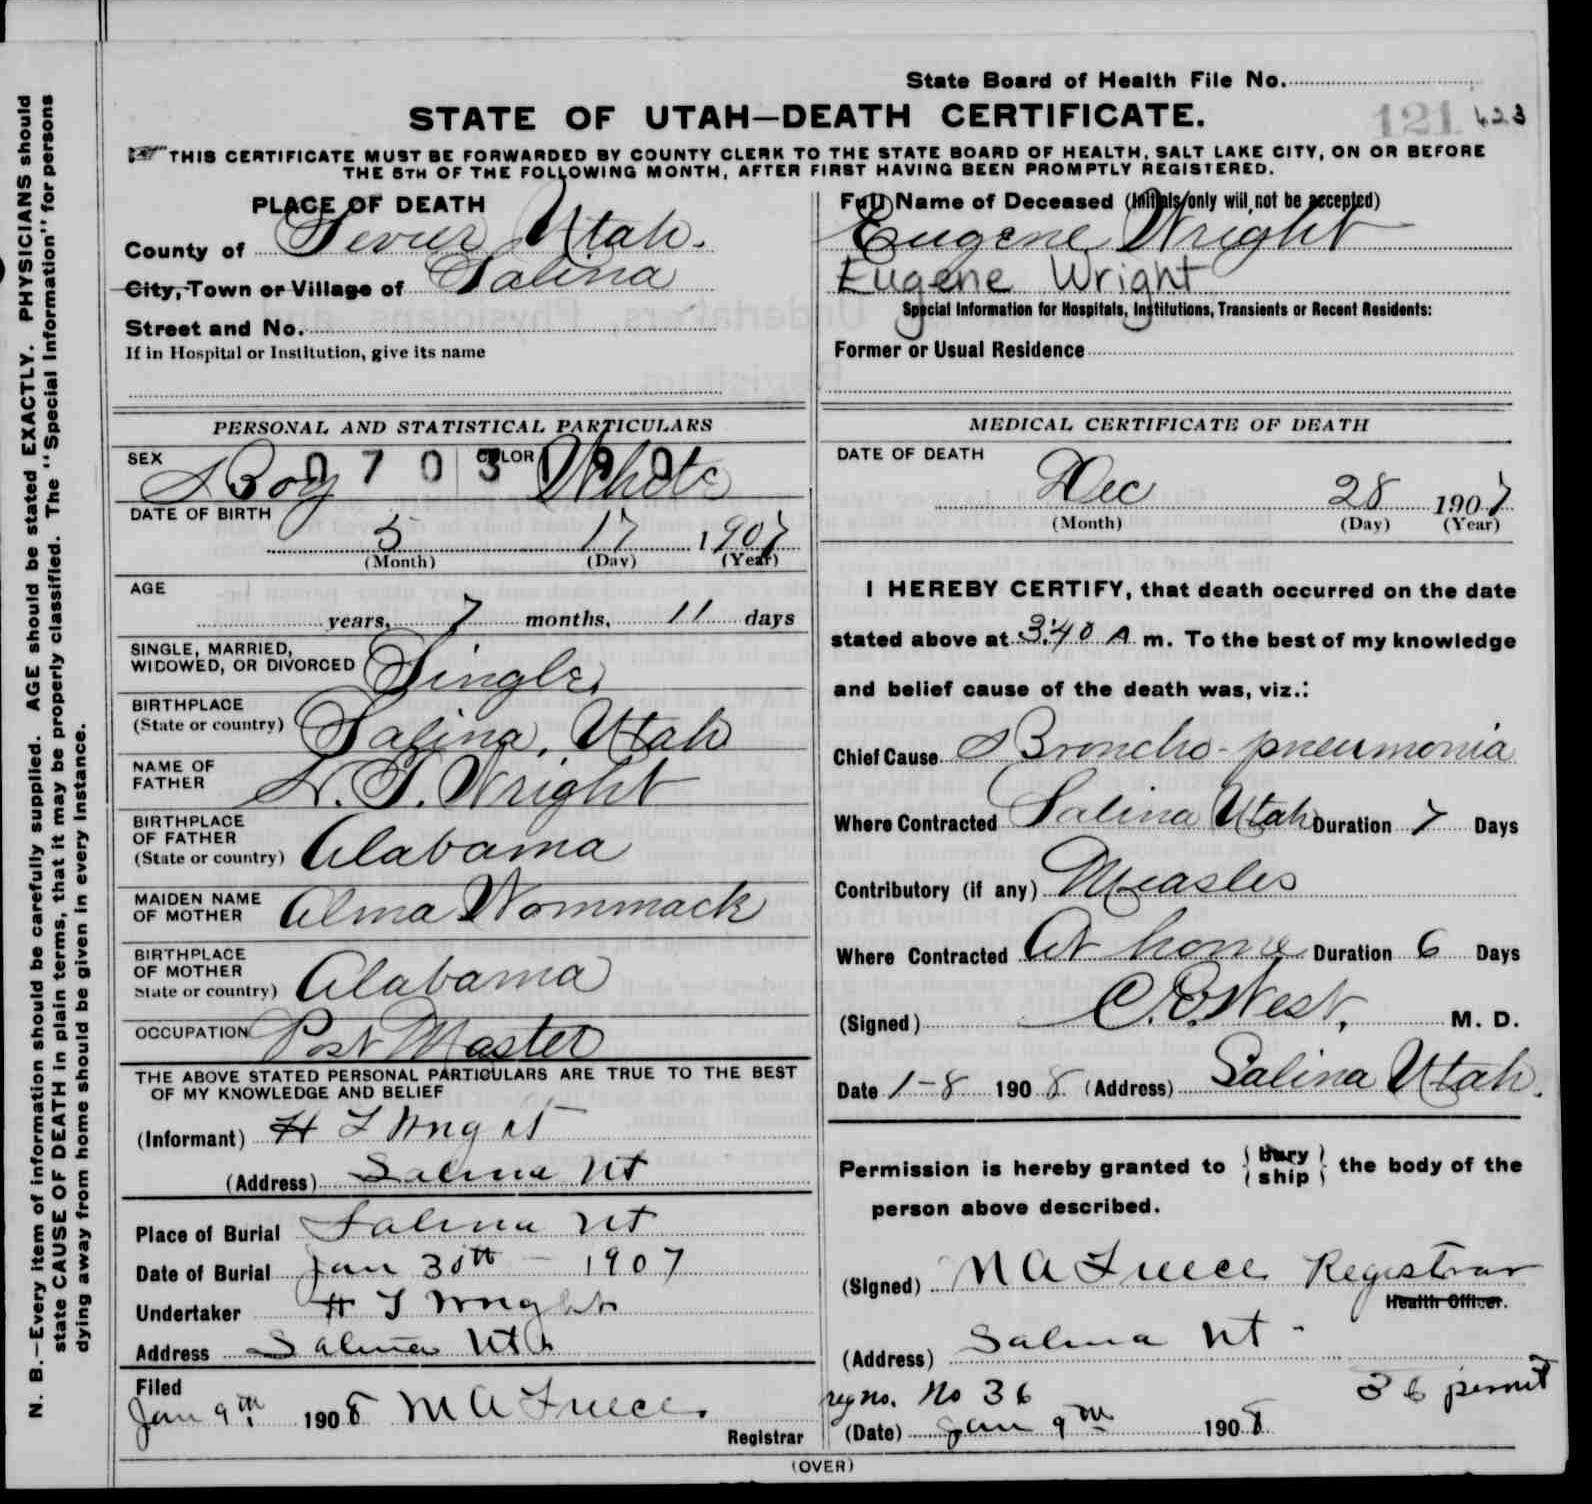 State Board of Health File No.
121 423
STATE OF UTAH—DEATH CERTIFICATE.
THIS CERTIFICATE MUST BE FORWARDED BY COUNTY CLERK TO THE STATE BOARD OF HEALTH, SALT LAKE CITY, ON OR BEFORE
THE 5TH OF THE FOLLOWING MONTH, AFTER FIRST HAVING BEEN PROMPTLY REGISTERED.
N. B.—Every item of information should be carefully supplied. AGE should be stated EXACTLY. PHYSICIANS should
state CAUSE OF DEATH in plain terms, that it may be properly classified. The "Special Information" for persons
dying away from home should be given in every instance.
PLACE OF DEATH
County of Sevier Utah.
City, Town or Village of Salina
Street and No.
If in Hospital or Institution, give its name
PERSONAL AND STATISTICAL PARTICULARS
SEX Boy COLOR White
0703190
DATE OF BIRTH
5 17 1907
(Month) (Day) (Year)
AGE
years, 7 months, 11 days
SINGLE, MARRIED,
WIDOWED, OR DIVORCED Single
BIRTHPLACE
(State or country) Salina, Utah
NAME OF
FATHER T. Wright
BIRTHPLACE
OF FATHER
(State or country) Alabama
MAIDEN NAME
OF MOTHER Alma Wommack
BIRTHPLACE
OF MOTHER
State or country) Alabama
OCCUPATION Post Master
THE ABOVE STATED PERSONAL PARTICULARS ARE TRUE TO THE BEST
OF MY KNOWLEDGE AND BELIEF
(Informant) H T Wright
(Address) Salina Ut
Place of Burial Salina Ut
Date of Burial Jan 30th - 1907
Undertaker H T Wright
Address Salina Utah
Filed
Jan 9th 1908 M A
Registrar
Full Name of Deceased (Initials only will not be accepted)
Eugene Wright
Eugene Wright
Special Information for Hospitals, Institutions, Transients or Recent Residents:
Former or Usual Residence
MEDICAL CERTIFICATE OF DEATH
DATE OF DEATH
Dec 28 1907
(Month) (Day) (Year)
I HEREBY CERTIFY, that death occurred on the date
stated above at 3:40 A m. To the best of my knowledge
and belief cause of the death was, viz.:
Chief Cause Broncho-pneumonia
Where Contracted Salina Utah Duration 7 Days
Contributory (if any) Measles
Where Contracted At home Duration 6 Days
(Signed) C. E. West, M. D.
Date 1-8 1908 (Address) Salina Utah.
Permission is hereby granted to {bury / ship} the body of the
person above described.
(Signed) M A Registrar
Health Officer.
(Address) Salina Ut -
reg no. No 36 36 permit
(Date) Jan 9th 1908
(OVER)